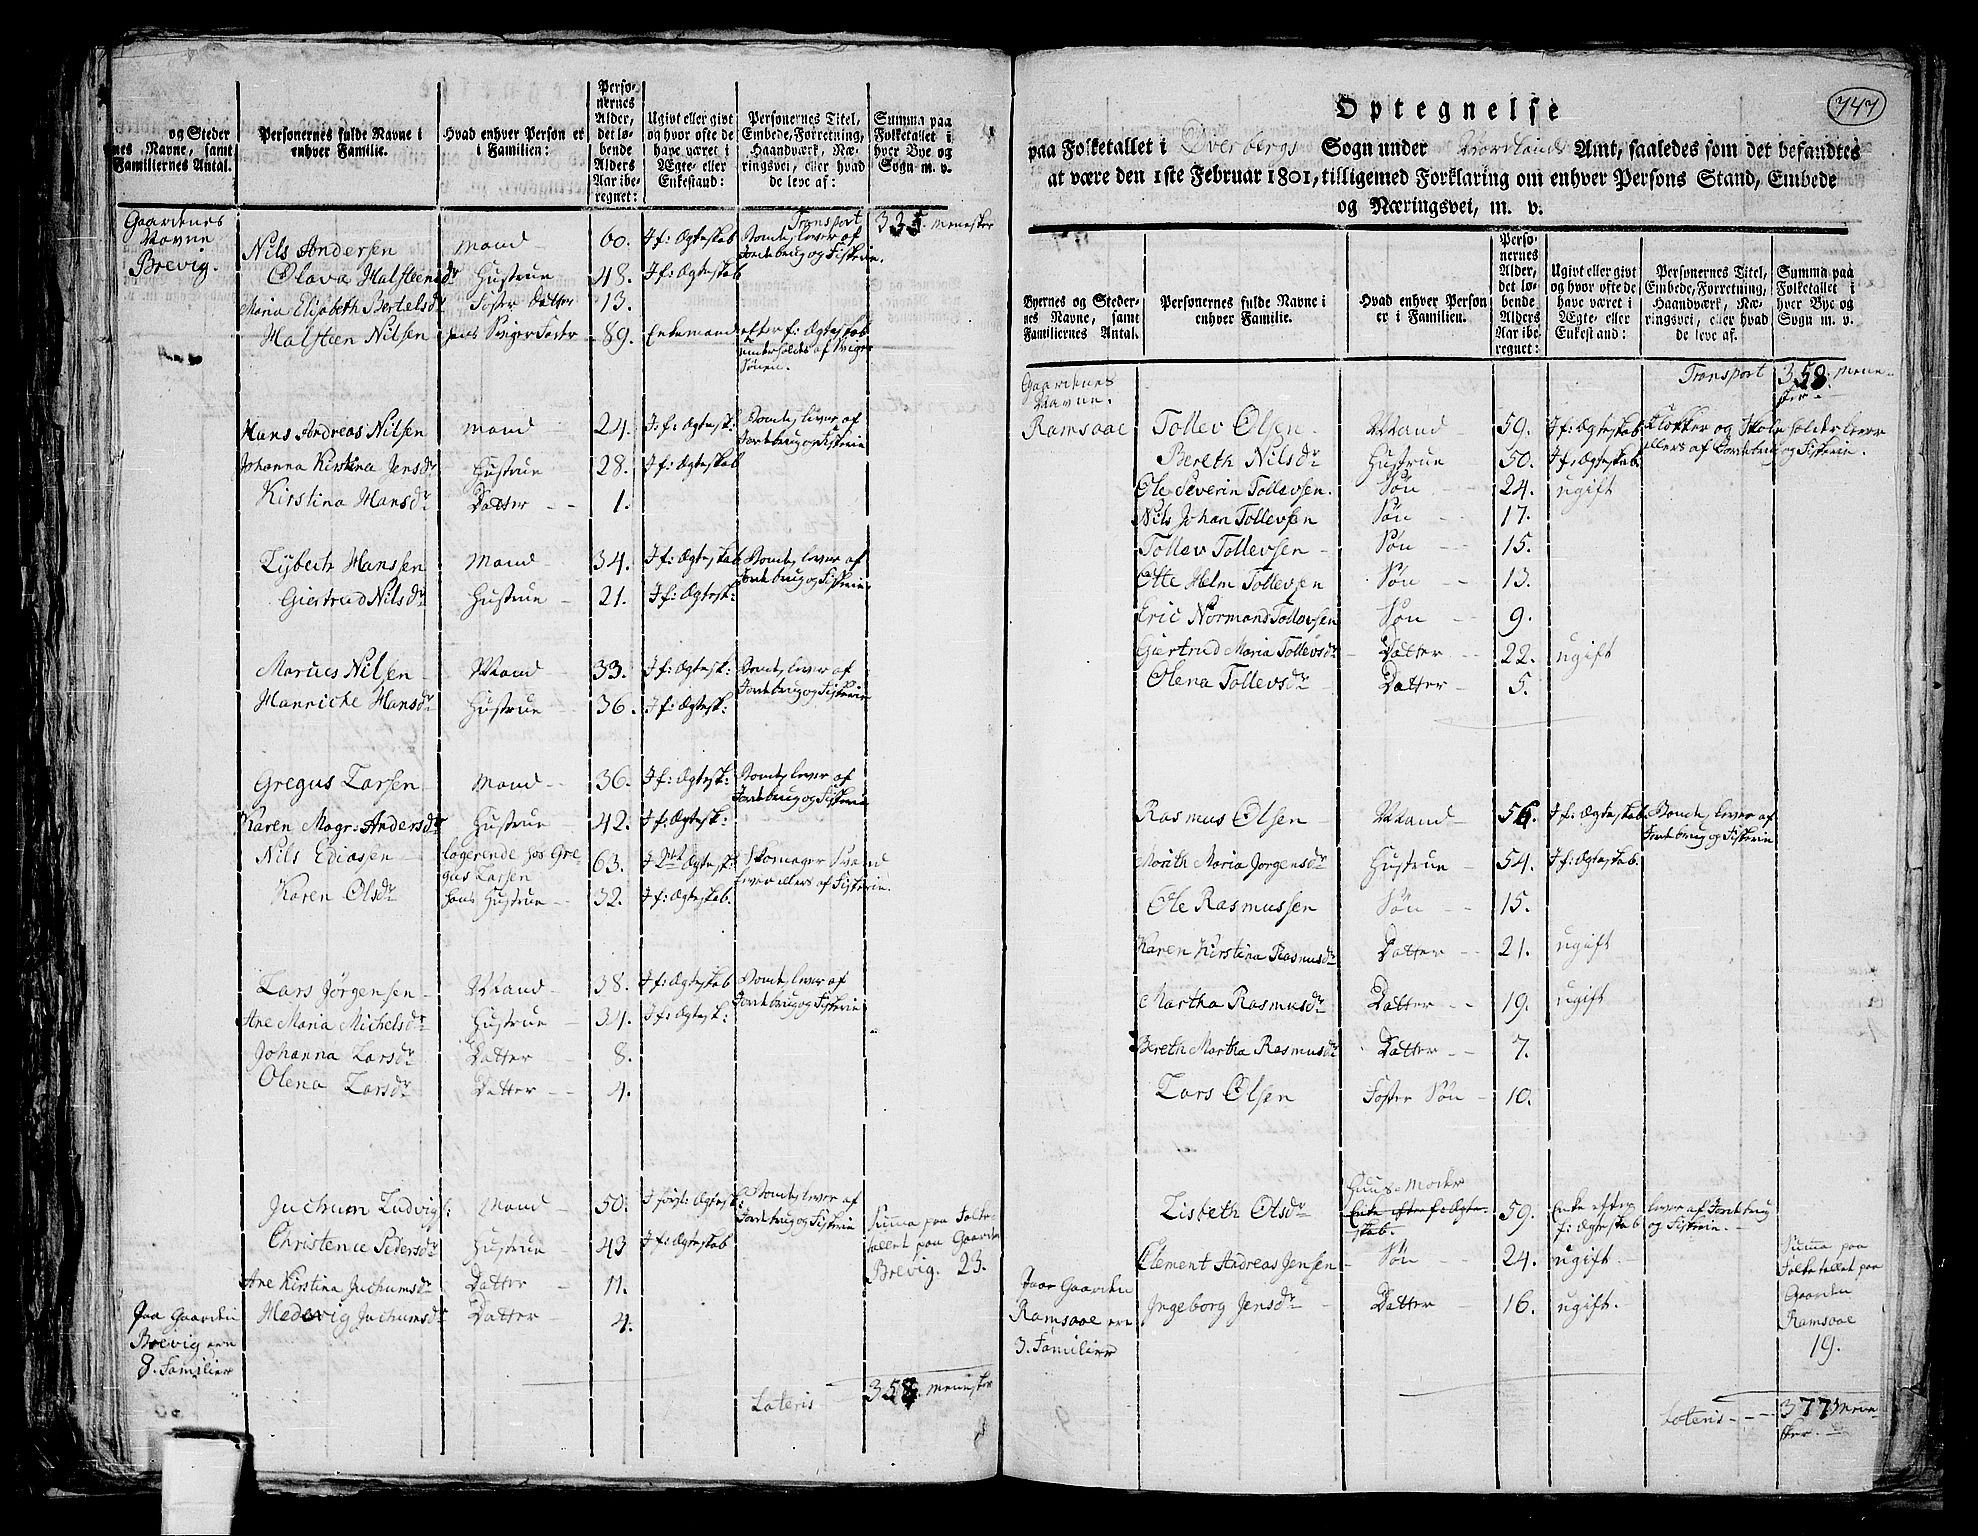 og Steder
nes Navne, samt
Familiernes Antal.
Personernes fulde Navne i
enhver Familie.
Hvad enhver Person er
i Familien:
Perso-
nernes
Alder,
det lø-
bende
Alders
Aar ibe-
regnet:
Ugivt eller givt
og hvor ofte de
have været i
Ægte- eller
Enkestand:
Personernes Titel,
Embede, Forretning,
Haandværk, Næ-
ringsvei, eller hvad
de leve af:
Summa paa
Folketallet i
hver Bye og
Sogn m. v.
Gaardenes
Navne
Transport 335. Mennesker
Brevig.
Nils Andersen Mand 60. I f: Ægteskab Bonde, lever af
Jordebrug og Fiskerie.
Olava Halsteensdr Hustrue 48. I f: Ægteskab
Maria Elisabeth Bertelsdr Foster Datter 13.
Halsteen Nilsen hans Sviger Fader 89. Enkemand efter f: Ægteskab
underholdes af Sviger
Sønen.
Hans Andreas Nilsen Mand 24. I f: Ægtesk: Bonde, lever af
Jordebrug og Fiskerie
Johanna Kirstina Jensdr Hustrue 28. I f: Ægteskab
Kirstina Hansdr Datter 1.
Lyberth Hanssen Mand 34. I f: Ægteskab Bonde, lever af
Jordebrug og Fiskerie
Giertrud Nilsdr Hustrue 21. I f: Ægtesk:
Marues Nilsen Mand 33. I f: Ægtesk: Bonde, lever af
Jordebrug og Fiskerie
Hanniche Hansdr Hustrue 36. I f: Ægtesk:
Gregus Larsen Mand 36. I f: Ægtesk: Bonde, lever af
Jordebrug og Fiskerie
Karen Magr: Andersdr Hustrue 42. I f: Ægtesk:
Nils Ediasen logerende hos Gre-
gus Larsen 63. I 2det Ægtesk: Skomager Svend
lever ellers af Fiskerie.
Karen Olsdr hans Hustrue 32. I f: Ægteskab.
Lars Jørgensen Mand 38. I f: Ægteskab Bonde, lever af
Jordebrug og Fiskerie
Ane Maria Michelsdr Hustrue 34. I f: Ægtesk:
Johanna Larsdr Datter 8.
Olena Larsdr Datter 4.
Juchum Ludvigs: Mand 50. I først: Ægtesk: Bonde, lever af
Jordebrug og Fiskerie
Christence Pedersdr Hustrue 43 I f: Ægteskab
Ane Kirstina Juchumsdr Datter 11.
Hedevig Juchumsdr Datter 4.
Summa paa Folke-
tallet paa Gaarden
Brevig. 23.
Paa Gaarden
Brevig ere
8. Familier
Lateris 358. Mennesker
747
Optegnelse
paa Folketallet i Øverbergs Sogn under Nordlands Amt, saaledes som det befandtes
at være den 1ste Februar 1801, tilligemed Forklaring om enhver Persons Stand, Embede
og Næringsvei, m. v.
Byernes og Steder-
nes Navne, samt
Familiernes Antal.
Personernes fulde Navne i
enhver Familie.
Hvad enhver Person
er i Familien.
Perso-
nernes
Alder,
det lø-
bende
Alders
Aar ibe-
regnet:
Ugivt eller givt
og hvor ofte de
have været i
Ægte- eller
Enkestand:
Personernes Titel,
Embede, Forretning,
Haandværk, Næ-
ringsvei, eller hvad
de leve af.
Summa paa
Folketallet i
hver Bye og
Sogn m. v.
Gaardenes
Navne.
Transport 358. Menne-
sker.
Ramsaae Tollev Olsen Mand 59. I f: Ægteskab Klokker og Skoleholder lever
ellers af Jordebrug og Fiskerie.
Bereth Nilsdr Hustrue 50. I f: Ægteskab.
Ole Severin Tollevsen. Søn 24. ugift
Nils Johan Tollevsen Søn 17.
Tollev Tollevsen Søn 15.
Otte Helm Tollevsen Søn 13.
Eric Normand Tollevsen Søn 9.
Giertrud Maria Tollevsdr Datter 22. ugift
Olena Tollevsdr Datter 5.
Rasmus Olsen Mand 56. I f: Ægteskab Bonde, lever af
Jordebrug og Fiskerie
Marith Maria Jørgensdr Hustrue 54. I f: Ægteskab.
Ole Rasmussen Søn 15.
Karen Kirstina Rasmusdr Datter 21. ugift
Martha Rasmusdr Datter 19. ugift
Bereth Martha Rasmusdr Datter 7.
Lars Olsen Foster Søn 10.
Huus Moder
Lisbeth Olsdr Enke efter f: Ægte-
skab. 59. Enke efter
f: Ægteskab lever af Jordebrug
og Fiskerie.
Clement Andreas Jensen Søn 24. ugift.
Ingeborg Jensdr Datter 16. ugift.
Paa Gaarden
Ramsaae ere
3. Familier
Summa paa
Folketallet paa
Gaarden
Ramsaae
19.
Lateris 377 Menne-
sker.